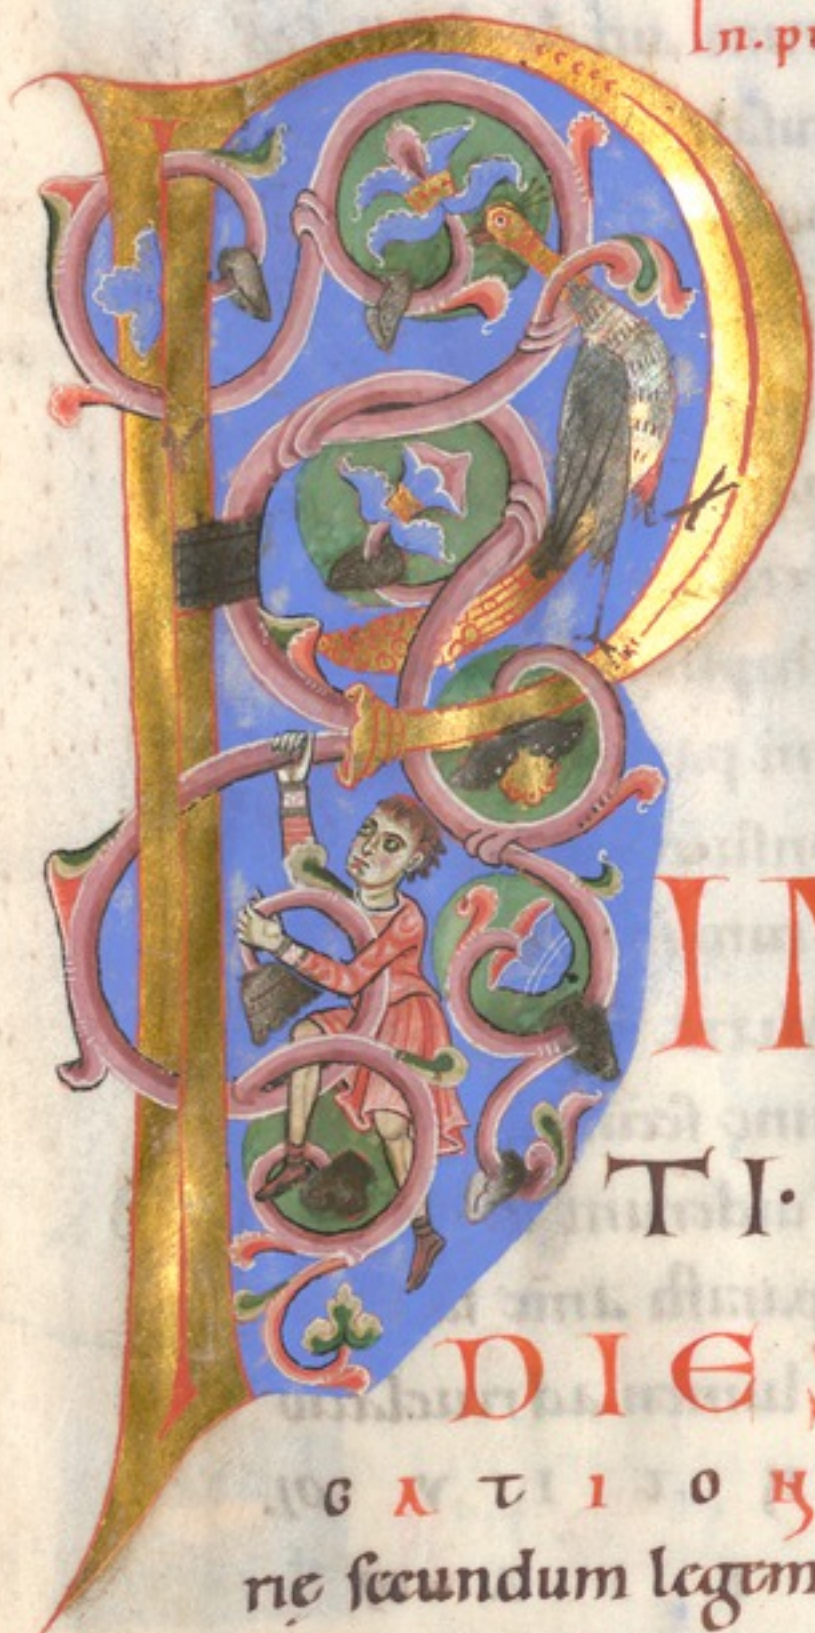 In.pu
P
IN
TI·
DIES
CATION
rię secundum legem